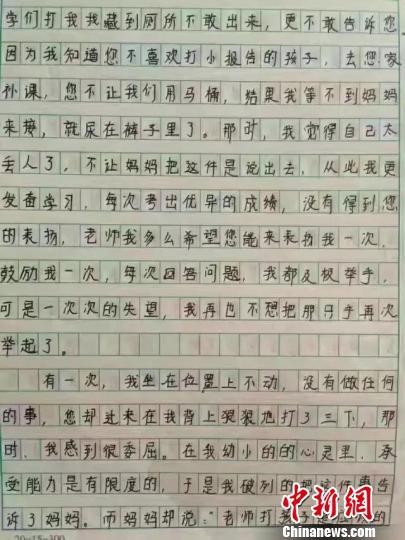 学们打我我藏到厕所不敢出来，更不敢告诉您，
因为我知道您不喜欢打小报告的孩子，去您家
补课，您不让我们用马桶，结果我等不到妈妈
来接，就尿在裤子里了。那时，我觉得自己太
丢人了，不让妈妈把这件是说出去，从此我更
发奋学习，每次考出优异的成绩，没有得到您
的表扬，老师我多么希望您能来表扬我一次，
鼓励我一次，每次回答问题，我都及极举手，
可是一次次的失望，我再也不想把那只手再次
举起了。
有一次，我坐在位置上不动，没有做任何
的事，您却进来在我背上狠狠地打了三下，那
时，我感到很委屈。在我幼小的的心灵里，承
受能力是有限度的，于是我破列的把这件事告
诉了妈妈。而妈妈却说：“老师打孩子是
的
20×15=300
中新网
Chinanews.com